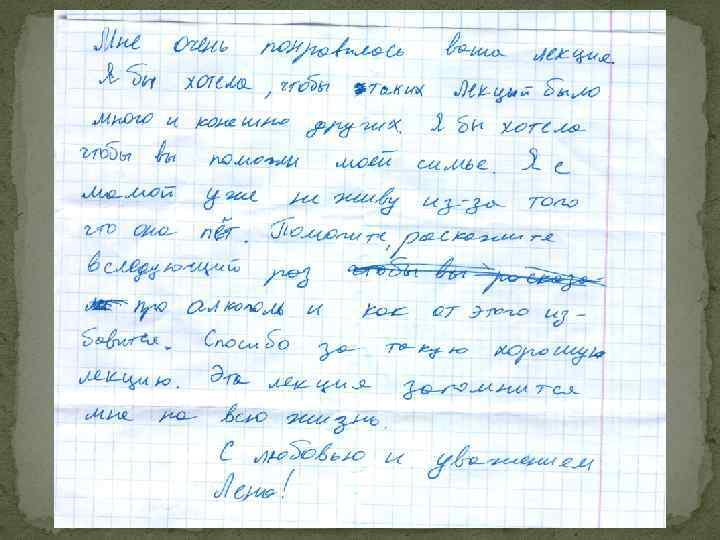 Мне очень понравилась ваша лекция.
Я бы хотела, чтобы таких лекций было
много и конешно других. Я бы хотела
чтобы вы помогли моей симье. Я с
мамой уже не живу из-за того
что она пёт. Помогите, раскажите
вследующий раз чтобы вы расказа-
ли про алкоголь и как от этого из-
бавится. Спосибо за такую хорошую
лекцию. Эта лекция запомнится
мне на всю жизнь.
С любовью и уважением
Лена!